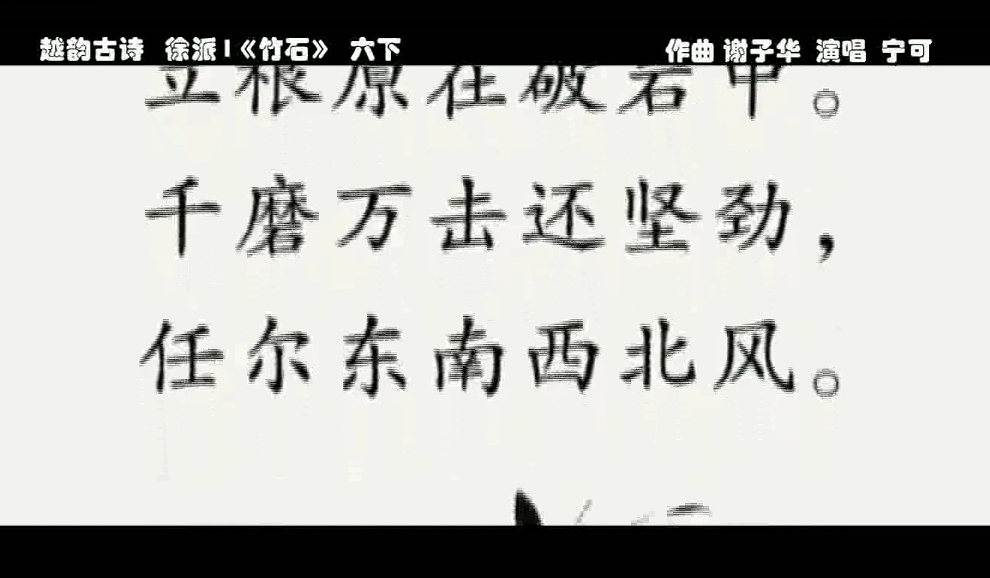 越韵古诗 徐派|《竹石》 六下
作曲 谢子华 演唱 宁可
立根原在破岩中。
千磨万击还坚劲，
任尔东南西北风。